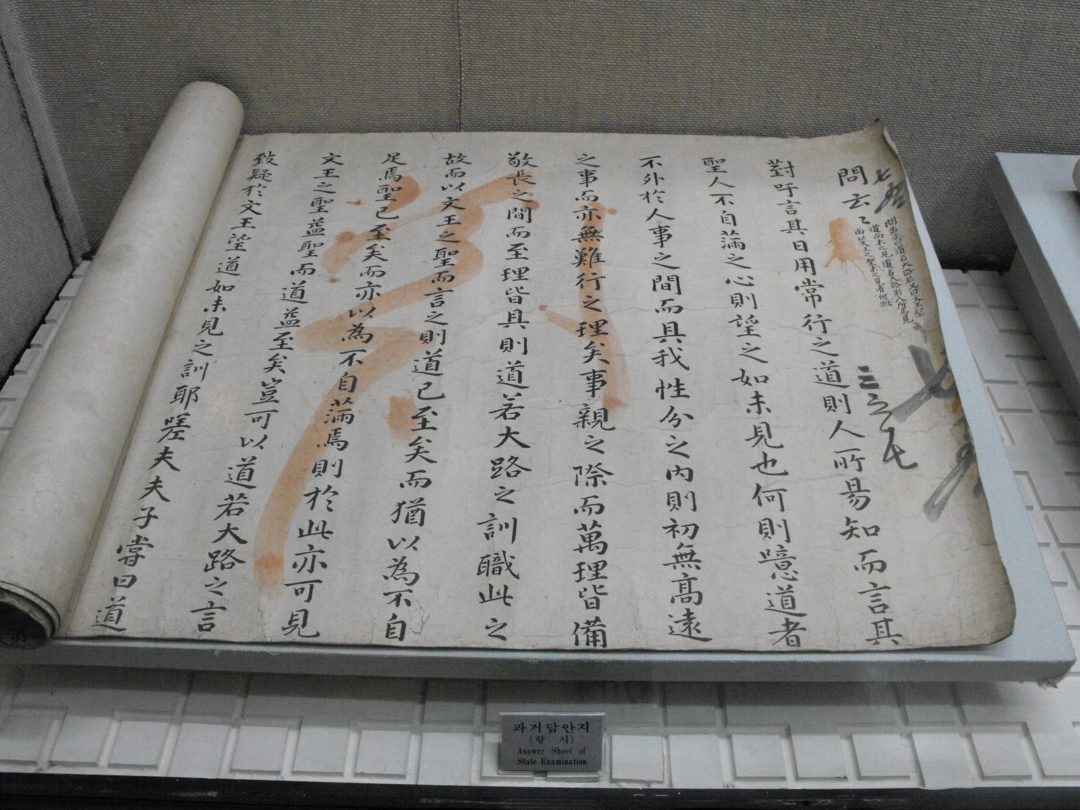 問云云
對吁言其日用常行之道則人所易知而言其
聖人不自滿之心則望之如未見也何則噫道者
不外於人事之間而具我性分之內則初無高遠
之事而亦無難行之理矣事親之際而萬理皆備
敬長之間而至理皆具則道若大路之訓職此之
故而以文王之聖而言之則道已至矣而猶以為不自
足焉聖已至矣而亦以為不自滿焉則於此亦可見
文王之聖益聖而道益至矣豈可以道若大路之言
致疑於文王望道如未見之訓耶嗟夫夫子嘗曰道
과거답안지
(향 시)
Answer Sheet of
State Examination